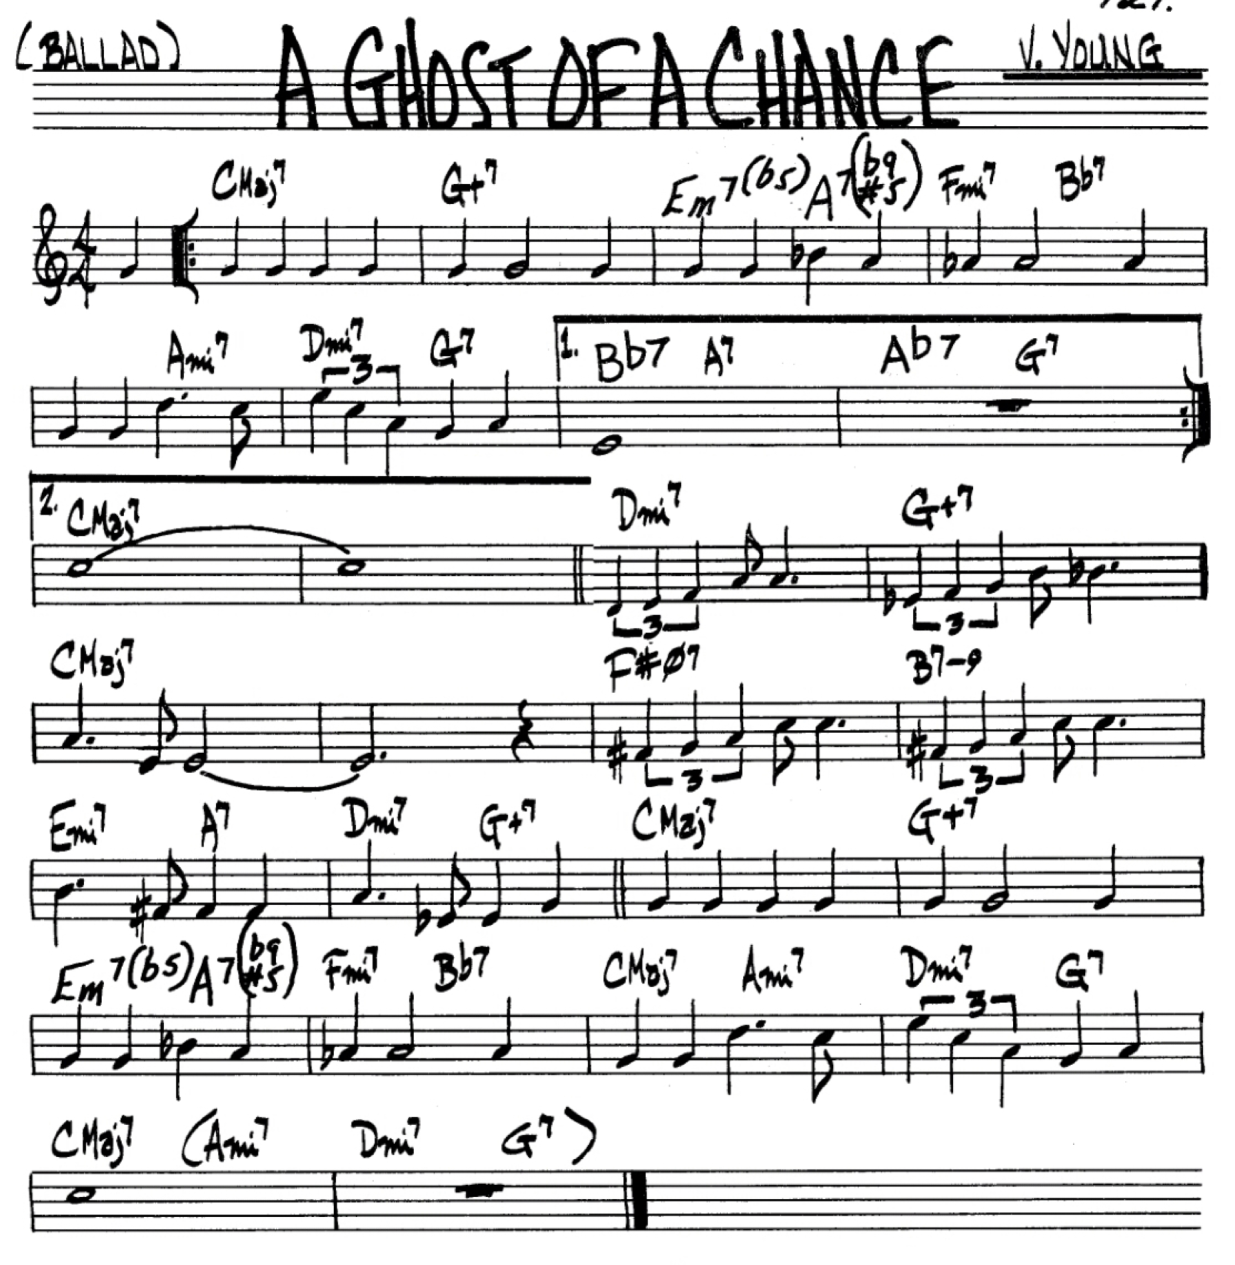 (BALLAD) A GHOST OF A CHANCE V. YOUNG
CMaj7 G+7 Em7(b5) A7(b9 #5) Fmi7 Bb7
4/4
Ami7 Dmi7 G7 1. Bb7 A7 Ab7 G7
3
2. CMaj7 Dmi7 G+7
3 3
CMaj7 F#ø7 B7-9
3 3
Emi7 A7 Dmi7 G+7 CMaj7 G+7
Em7(b5) A7(b9 #5) Fmi7 Bb7 CMaj7 Ami7 Dmi7 G7
3
CMaj7 (Ami7 Dmi7 G7)